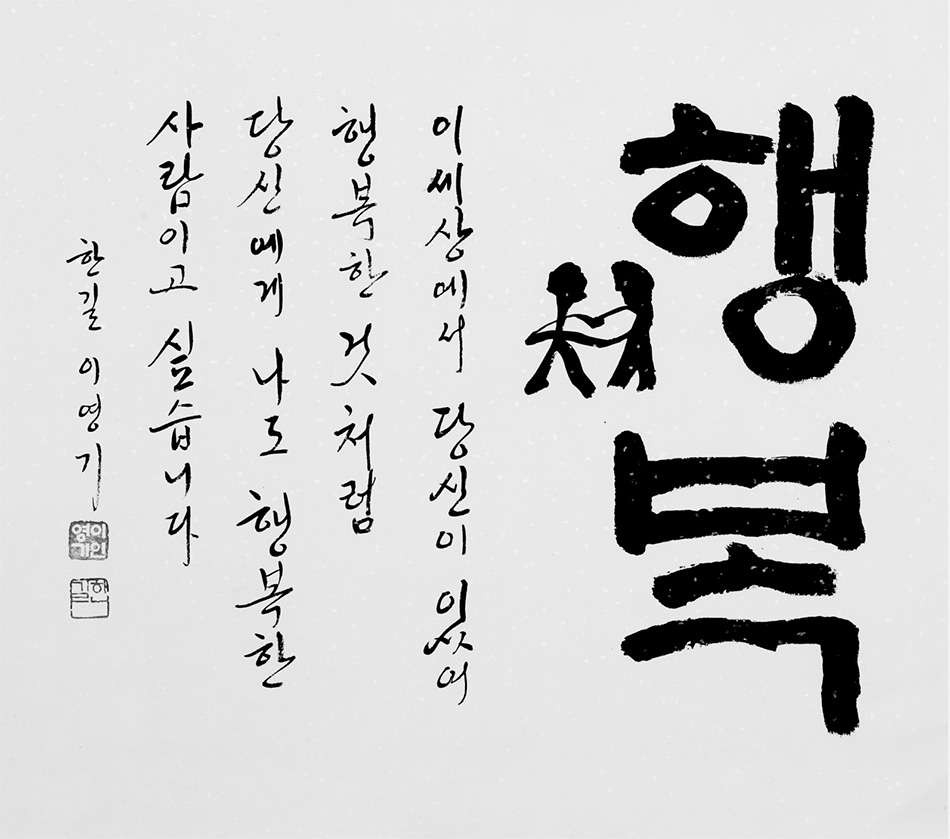 행복
이 세상에서 당신이 있어
행복한 것처럼
당신에게 나도 행복한
사람이고 싶습니다
한길 이영기
이영기인
한길